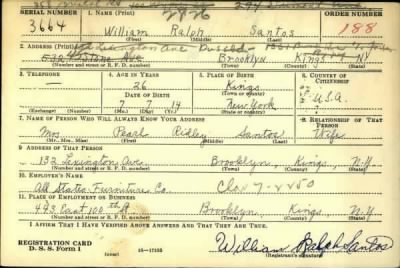 SERIAL NUMBER
1. NAME (Print)
ORDER NUMBER
3664
William Ralph Santos
188
(First) (Middle) (Last)
2. ADDRESS (Print)
Brooklyn Kings NY
(Number and street or R. F. D. number) (Town) (County) (State)
3. TELEPHONE
4. AGE IN YEARS
5. PLACE OF BIRTH
6. COUNTRY OF CITIZENSHIP
—
26
Kings
DATE OF BIRTH
(Town or county)
U.S.A.
7 7 14
New York
(Exchange) (Number)
(Mo.) (Day) (Yr.)
(State or country)
7. NAME OF PERSON WHO WILL ALWAYS KNOW YOUR ADDRESS
8. RELATIONSHIP OF THAT PERSON
Mrs Pearl Ridley Santos
Wife
(Mr., Mrs., Miss) (First) (Middle) (Last)
9. ADDRESS OF THAT PERSON
132 Lexington Ave. Brooklyn, Kings, N.Y
(Number and street or R. F. D. number) (Town) (County) (State)
10. EMPLOYER'S NAME
All State Furniture Co.
11. PLACE OF EMPLOYMENT OR BUSINESS
493 East 100th St. Brooklyn, Kings, N.Y
(Number and street or R. F. D. number) (Town) (County) (State)
I AFFIRM THAT I HAVE VERIFIED ABOVE ANSWERS AND THAT THEY ARE TRUE.
REGISTRATION CARD
D. S. S. Form 1
(over)
16—17105
William Ralph Santos
(Registrant's signature)